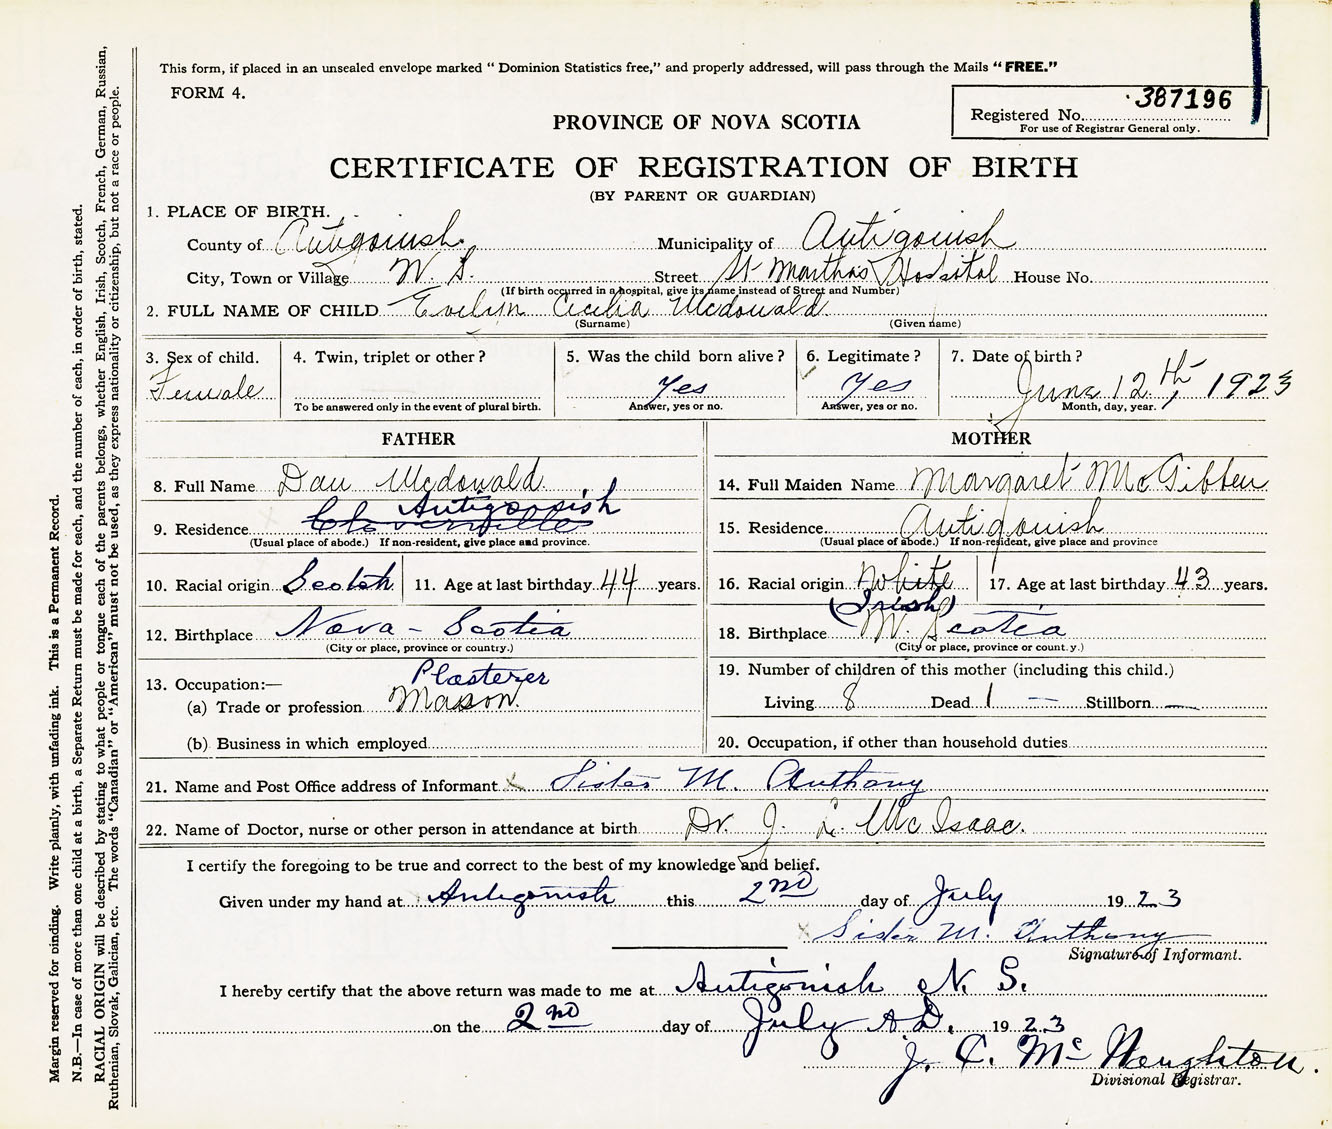 This form, if placed in an unsealed envelope marked “ Dominion Statistics free,” and properly addressed, will pass through the Mails “ FREE.”
FORM 4.
Registered No. 387196
For use of Registrar General only.
PROVINCE OF NOVA SCOTIA
CERTIFICATE OF REGISTRATION OF BIRTH
(BY PARENT OR GUARDIAN)
1. PLACE OF BIRTH.
County of Antigonish Municipality of Antigonish
City, Town or Village N. S. Street St Marthas Hospital House No.
(If birth occurred in a hospital, give its name instead of Street and Number)
2. FULL NAME OF CHILD Evelyn Cecilia Mcdonald
(Surname) (Given name)
3. Sex of child. 4. Twin, triplet or other ? 5. Was the child born alive ? 6. Legitimate ? 7. Date of birth ?
Female Yes Yes June 12th, 1923
To be answered only in the event of plural birth. Answer, yes or no. Answer, yes or no. Month, day, year.
FATHER
8. Full Name Dan Mcdonald
Antigonish
9. Residence
(Usual place of abode.) If non-resident, give place and province.
10. Racial origin Scotch 11. Age at last birthday 44 years.
12. Birthplace Nova - Scotia
(City or place, province or country.)
Plasterer
13. Occupation:—
(a) Trade or profession Mason
(b) Business in which employed
MOTHER
14. Full Maiden Name Margaret McGibben
15. Residence. Antigonish
(Usual place of abode.) If non-resident, give place and province
16. Racial origin White 17. Age at last birthday 43 years.
(Irish)
18. Birthplace N. Scotia
(City or place, province or count.y.)
19. Number of children of this mother (including this child.)
Living 8 Dead 1 — Stillborn —
20. Occupation, if other than household duties
21. Name and Post Office address of Informant x Sister M. Anthony
22. Name of Doctor, nurse or other person in attendance at birth Dr. J. L. McIsaac.
I certify the foregoing to be true and correct to the best of my knowledge and belief.
Given under my hand at Antigonish this 2ND day of July 1923
x Sister M. Anthony
Signature of Informant.
I hereby certify that the above return was made to me at Antigonish N. S.
on the 2nd day of July A.D. 1923
J. C. McNaughton.
Divisional Registrar.
Margin reserved for binding. Write plainly, with unfading ink. This is a Permanent Record.
N.B.—In case of more than one child at a birth, a Separate Return must be made for each, and the number of each, in order of birth, stated.
RACIAL ORIGIN will be described by stating to what people or tongue each of the parents belongs, whether English, Irish, Scotch, French, German, Russian,
Ruthenian, Slovak, Galician, etc. The words “Canadian” or “American” must not be used, as they express nationality or citizenship, but not a race or people.